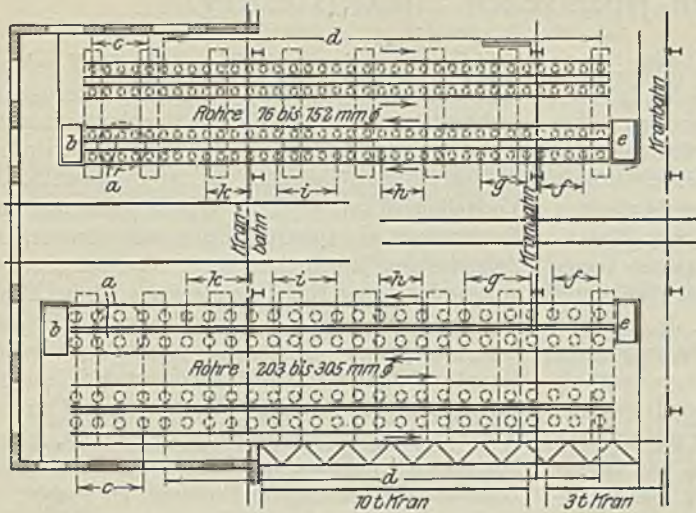 c
d
Rohre 76 bis 152 mm ϕ
b
e
Kranbahn
a
k
i
h
g
f
Kran-
bahn
Kranbahn
a
k
i
h
g
f
b
e
Rohre 203 bis 305 mm ϕ
c
d
10 t Kran
3 t Kran